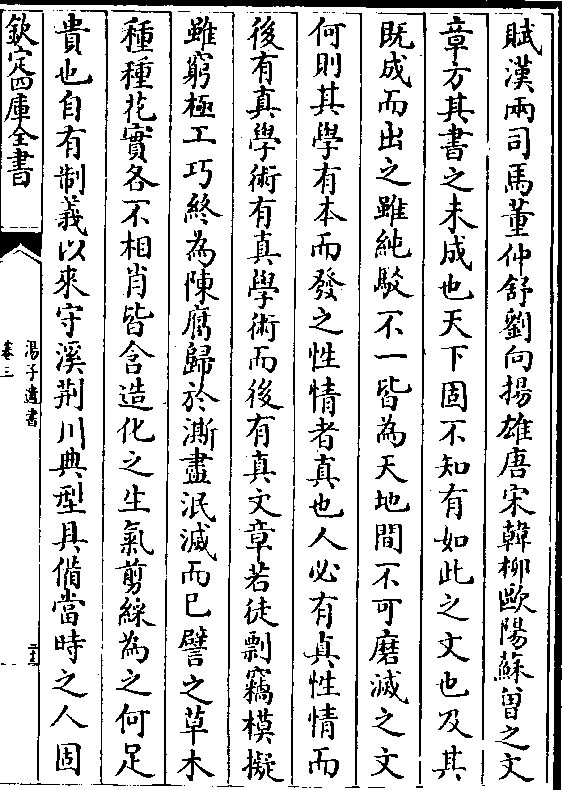 賦漢兩司馬董仲舒劉向揚雄唐宋韓柳歐陽蘇曽之文
章方其書之未成也天下固不知有如此之文也及其
既成而出之雖純駁不一皆為天地間不可磨滅之文
何則其學有本而發之性情者真也人必有真性情而
後有真學術有真學術而後有真文章若徒剽竊模擬
雖窮極工巧終為陳腐歸於澌盡泯滅而已譬之草木
種種花實各不相肖皆含造化之生氣剪綵為之何足
貴也自有制義以來守溪荆川典型具備當時之人固
欽定四庫全書
湯子遺書
卷三